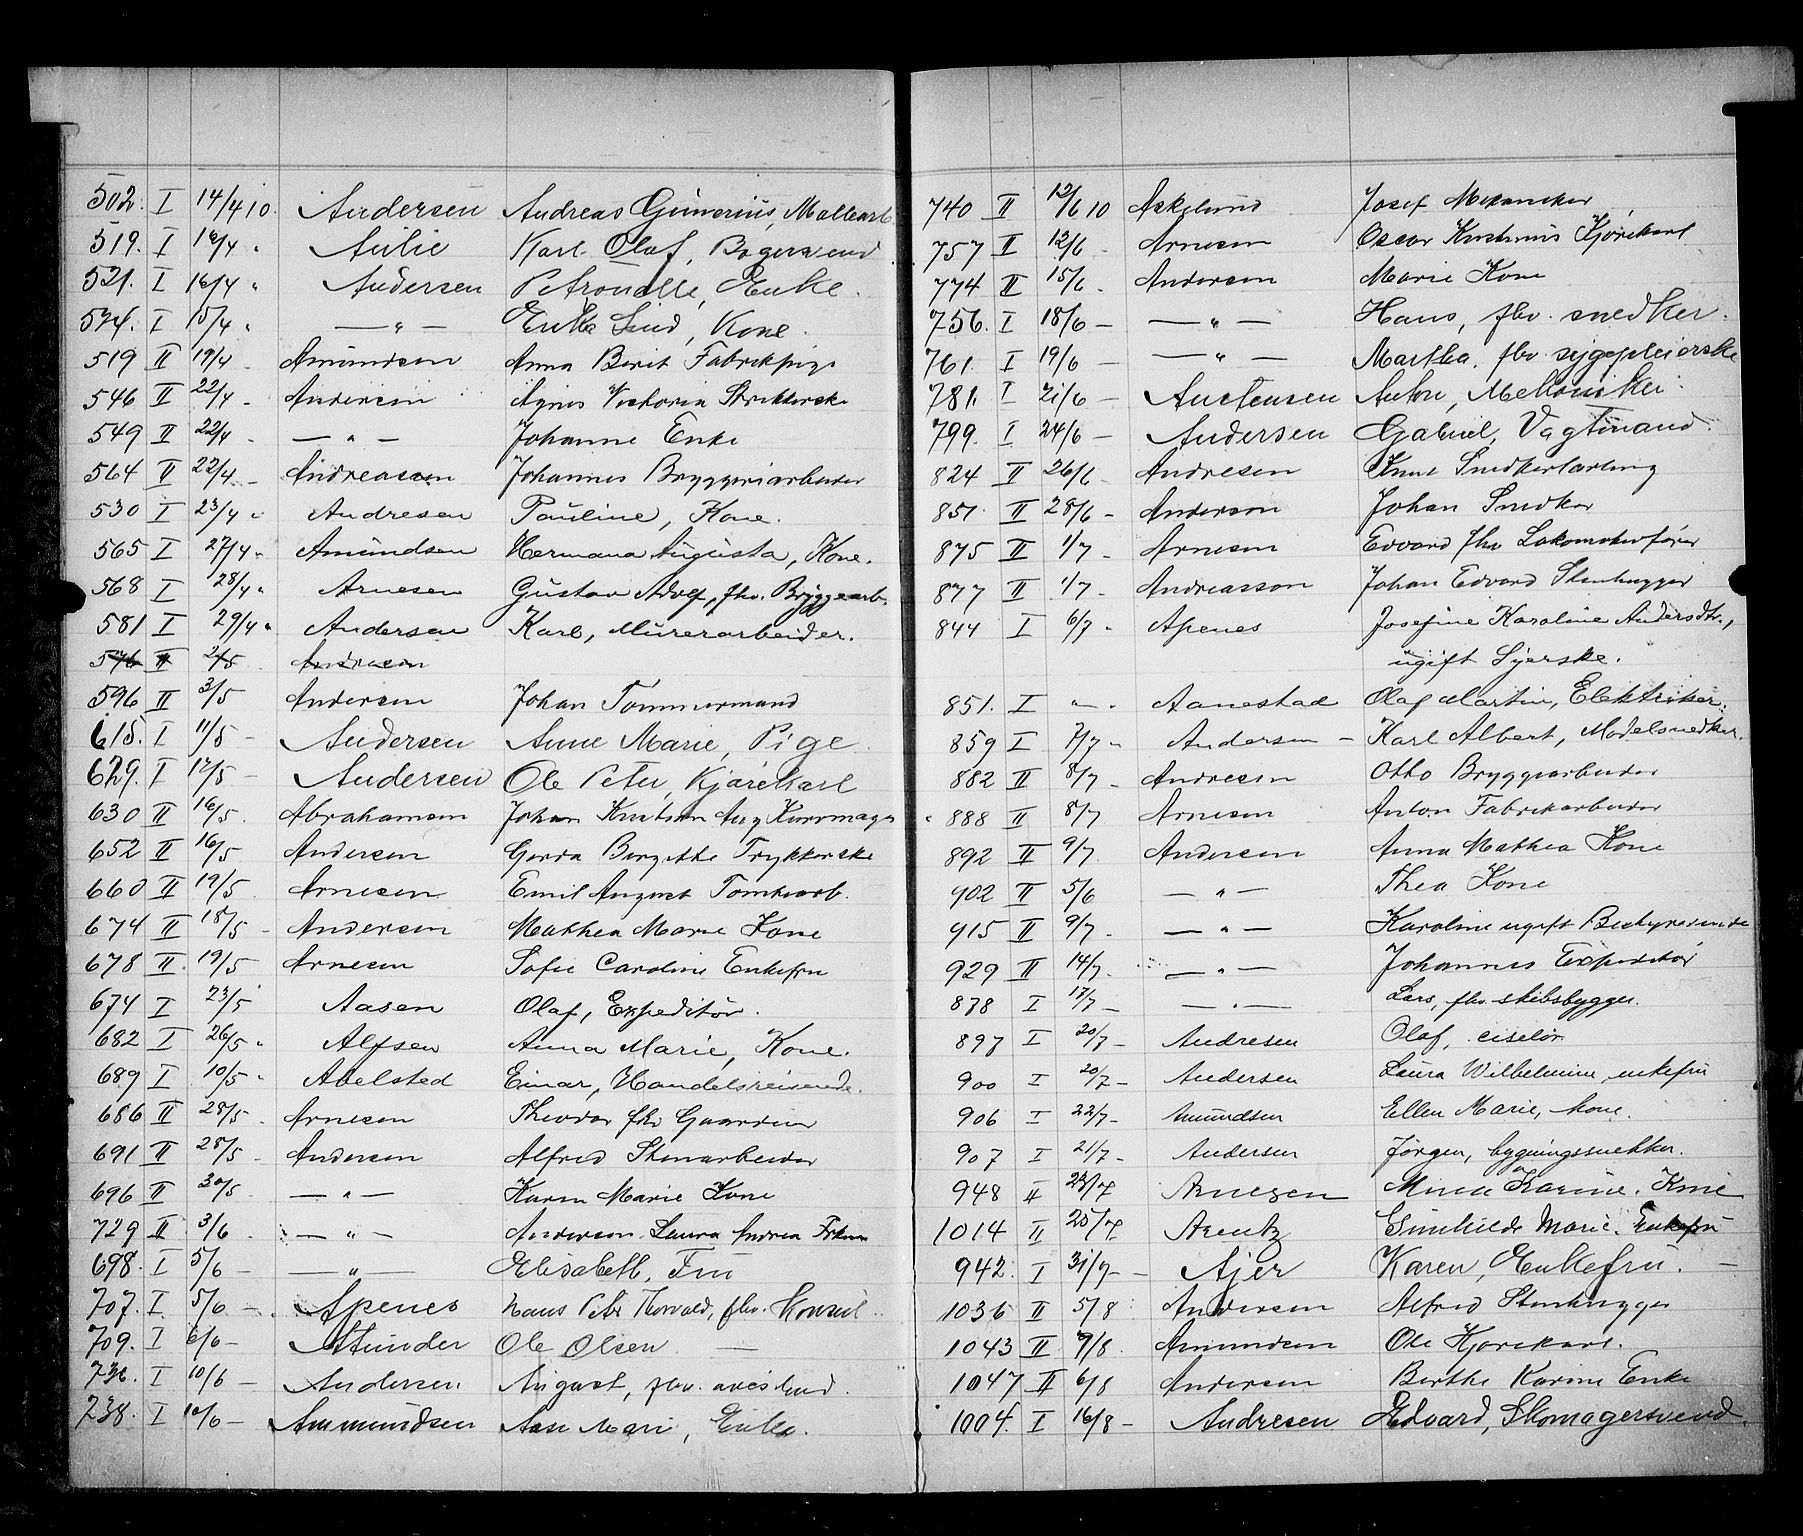 502. I 14/4 10. Andersen Andreas Gunerius, Malleark
519. I 16/4 " Aulie Karl Olaf, Bagersvend
521. I 16/4 " Andersen Petronelle, Enke.
524. I 15/4 " —"— Erika Lund, Kone.
519 II 19/4 Amundsen Anna Berit Fabrikpige
546 II 22/4 - Andersen Agnes Victoria Strikkerske
549 II 22/4 - —"— Johanne Enke
564 II 22/4 - Andreassen Johannes Bryggeriarbeider
530 I 23/4 " Andresen Pauline, Kone.
565 I 27/4 " Amundsen Hermana Augusta, Kone.
568 I 28/4 " Arnesen Gustav Adolf, fhv. Bryggearb.
581 I 29/4 " Andersen Karl, Murerarbeider.
576 II 2/5 Andresen
596 II 3/5 Andersen Johan Tømmermand
615. I 11/5 - Andersen Anne Marie, Pige.
629. I 12/5 - Andersen Ole Peter, Kjørekarl
630 II 16/5. Abrahamsen Johan Knutsen Aug Kurvmager
652 II 16/5 Andersen Gerda Birgitte Trykkerske
660 II 19/5 Arnesen Emil August Tomtearb.
674 II 18/5 - Andersen Mathea Marie Kone
678 II 19/5 - Arnesen Sofie Caroline Enkefru
674 I 23/5 Aasen Olaf, Expeditør.
682 I 26/5 " Alfsen Anna Marie, Kone.
689 I 10/5 " Abelsted Einar, Handelsreisende.
686 II 28/5 . Arnesen Theodor fhv Gaardeier
691 II 28/5 - Andersen Alfred Stenarbeider
696 II 30/5 —"— Karen Marie Kone
729 II 3/6 —"— Andersen Laura Andrea Frken
698. I 5/6 - —"— Elisabeth, Fru
707. I. 5/6 - Apenes Hans Petr Thorvald, fhv. Konsul.
709. I 6/6 - Amunder Ole Olsen —
736. I 10/6 - Andersen August, fhv. avisbud.
738. I 10/6 - Ammundsen Aase Marie, Enke.
740 II 12/6 10 Askelund Josef Mekaniker
757 II 12/6 - Arnesen Oscar Kristinus Kjørekarl
774 II 15/6 - Andersen Marie Kone
756. I 18/6 — —"— Hans, fhv. snedker.
761. I 19/6 — —"— Martha, fhv. sygepleierske
781. I 21/6 — Austensen Anton, Mekaniker.
799. I 24/6 — Andersen Gabriel, Vagtmand.
824 II 26/6 - Andresen Knut Snedkerlærling
851. II 28/6 - Andersen Johan Snedker
875 II 1/7 - Arnesen Edvard fhv Lokomotivfører
877 II 1/7 - Andreassen Johan Edvard Stenhugger
844 I 6/7 " Apenes Josefine Karoline Andersdtr.,
ugift Syerske.
851. I " " Aanestad Olaf Martin, Elektriker.
859 I 7/7 " Andersen — Karl Albert, Modelsnedker.
882 II 8/7 - Andresen Otto Bryggeriarbeider
888 II 8/7 Arnesen Anton Fabrikarbeider
892 II 9/7. Andersen Anna Mathea Kone
902 II 5/6 —"— Thea Kone
915 II 9/7. —"— Karoline ugift Bestyrerinde
929 II 14/7. —"— Johannes Expeditør
878 I 17/7 — —"— Lars, fhv. skibsbygger.
897 I 20/7 - Andresen Olaf, ciselør
900 I 20/7 - Andersen Laura Wilhelmine, enkefru
906 I 22/7 - Amundsen Ellen Marie, kone.
907 I 21/7 - Andersen Jørgen, bygningssnekker.
948 II 23/7 Arnesen Minda Karine. Kone
1014 II 25/7 Arentz Gunhilde Marie. Enkefru
942. I 31/7 — Ajer Karen, Enkefru. —
1036 II 5/8 Andersen Alfred Stenhugger
1043 II 7/8. Amundsen Ole Kjørekarl.
1047 II 6/8 Andersen Berthe Karine Enke
1004. I 16/8 - Andresen Edvard, Skomagersvend.